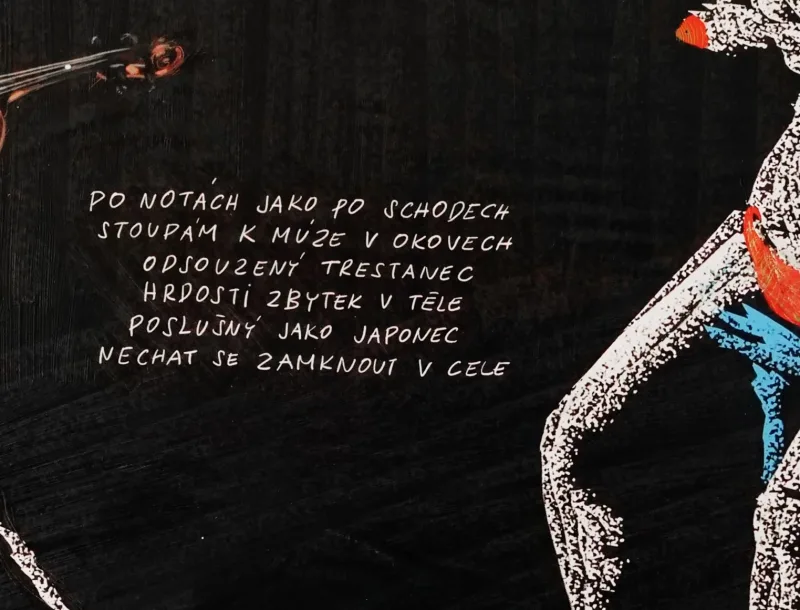 PO NOTÁCH JAKO PO SCHODECH
STOUPÁM K MÚZE V OKOVECH
ODSOUZENÝ TRESTANEC
HRDOSTI ZBYTEK V TĚLE
POSLUŠNÝ JAKO JAPONEC
NECHAT SE ZAMKNOUT V CELE